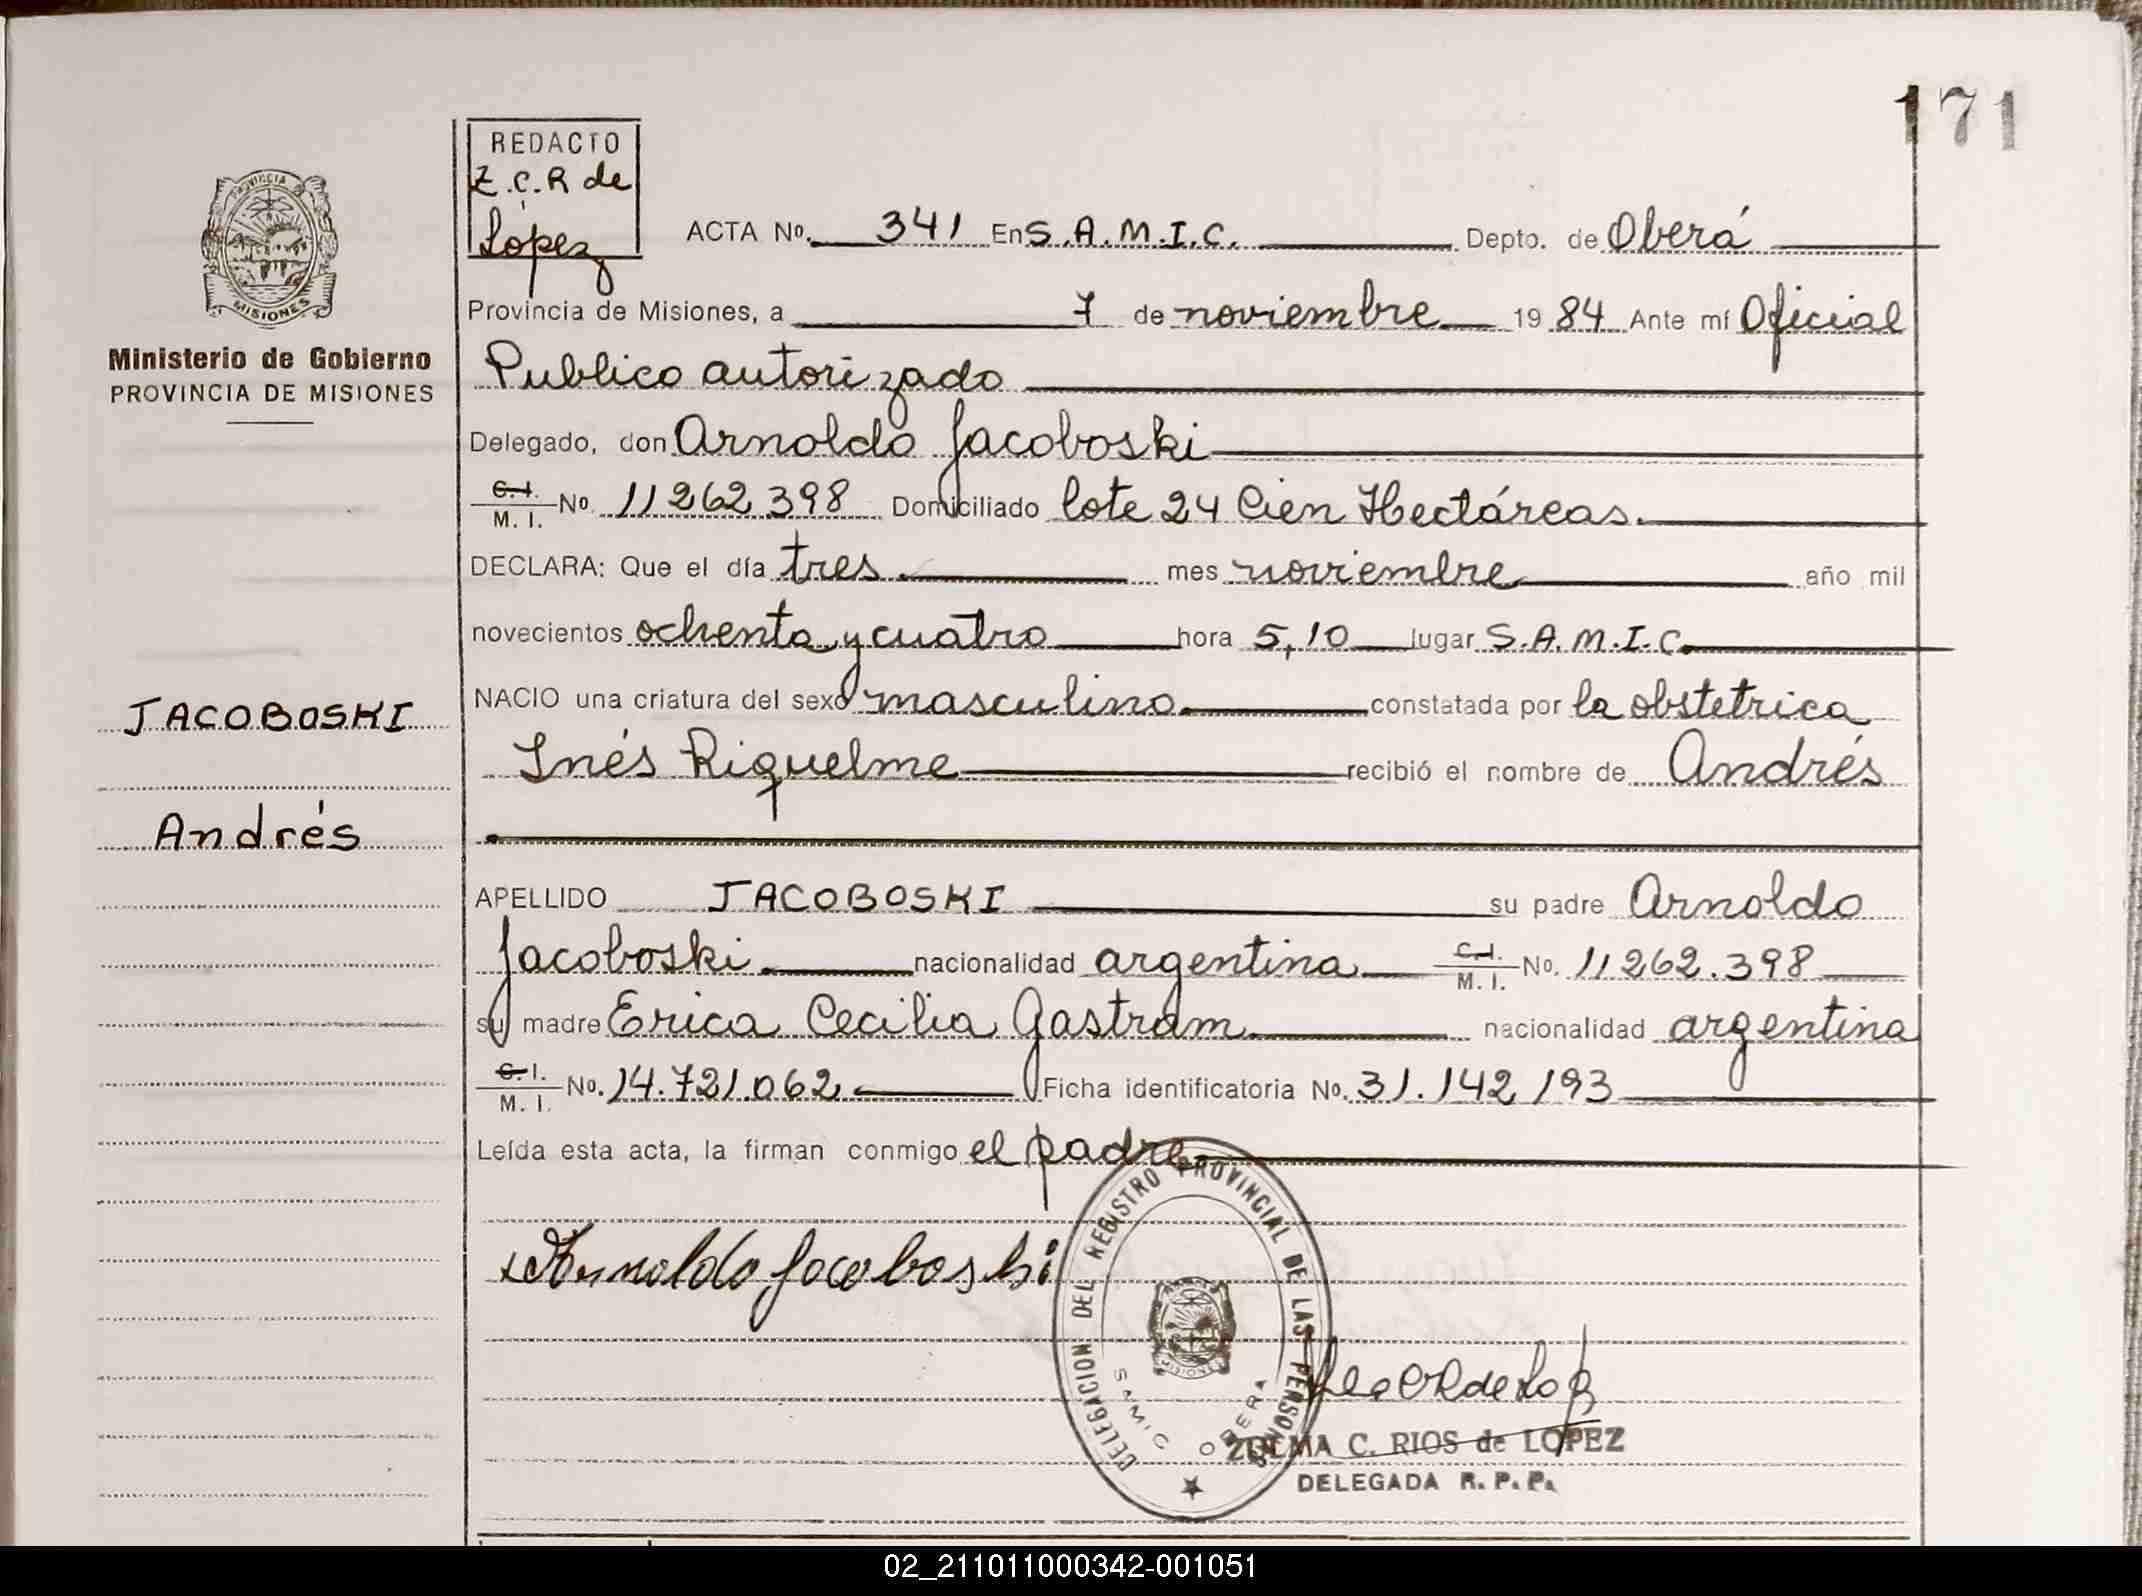 171
REDACTO
Z.C.R de
López
PROVINCIA
MISIONES
Ministerio de Gobierno
PROVINCIA DE MISIONES
ACTA No. 341 En S.A.M.I.C. Depto. de Oberá
Provincia de Misiones, a 7 de noviembre 1984 Ante mí Oficial
Publico autorizado
Delegado, don Arnoldo Jacoboski
C.I. / M.I. No. 11262398 Domiciliado lote 24 Cien Hectáreas.
DECLARA: Que el día tres mes noviembre año mil
novecientos ochenta y cuatro hora 5,10 lugar S.A.M.I.C.
NACIO una criatura del sexo masculino constatada por la obstetrica
Inés Riquelme recibió el nombre de Andrés
JACOBOSKI
Andrés
APELLIDO JACOBOSKI su padre Arnoldo
Jacoboski nacionalidad argentina C.I. / M.I. No. 11262.398
su madre Erica Cecilia Gastram nacionalidad argentina
C.I. / M.I. No. 14.721.062 Ficha identificatoria No. 31.142.193
Leída esta acta, la firman conmigo el padre
Arnoldo Jacoboski
DELEGACION DEL REGISTRO PROVINCIAL DE LAS PERSONAS
MISIONES
SAMIC OBERA
ZULMA C. RIOS de LOPEZ
DELEGADA R. P. P.
02_211011000342-001051